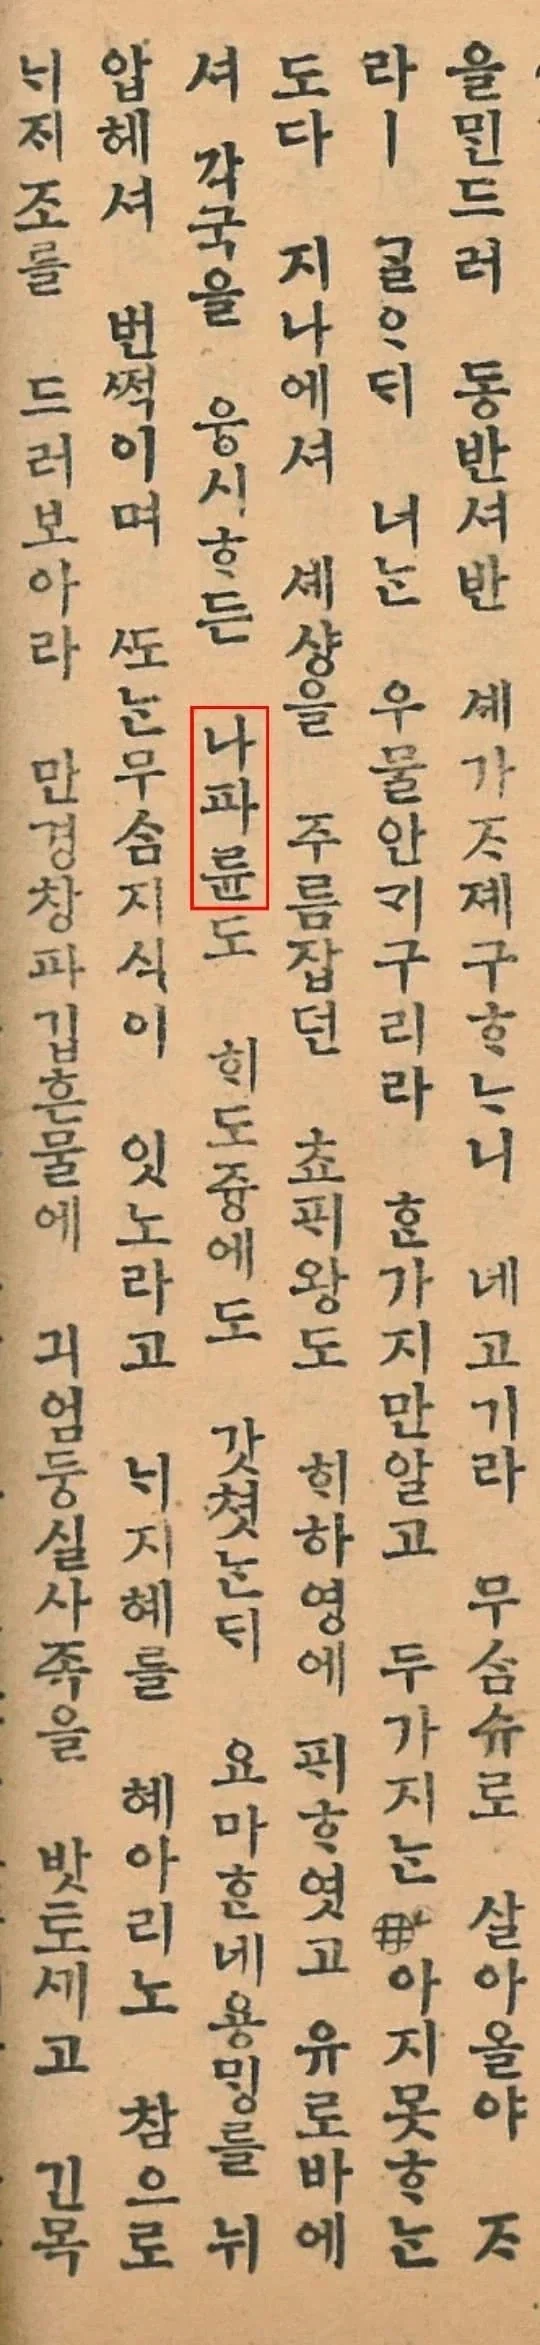 을 ᄆᆡᆫ드러 동반셔반 셰가ᄌᆞ졔구ᄒᆞᄂᆞ니 네고기라 무ᄉᆞᆷ슈로 살아올야 ᄌᆞ
라ㅣ ᄀᆞᆯᄋᆞᄃᆡ 너ᄂᆞᆫ 우물안ᄀᆡ구리라 ᄒᆞᆫ가지만알고 두가지ᄂᆞᆫ 아지못ᄒᆞᄂᆞᆫ
도다 지나에셔 셰샹을 주름잡던 쵸ᄑᆡ왕도 ᄒᆡ하영에 ᄑᆡᄒᆞ엿고 유로바에
셔 각국을 웅시ᄒᆞ든 나파륜도 ᄒᆡ도즁에도 갓쳣ᄂᆞᆫᄃᆡ 요마ᄒᆞᆫ네용ᄆᆡᆼ를 뉘
압헤셔 번쩍이며 ᄯᅩᄂᆞᆫ무ᄉᆞᆷ지식이 잇노라고 ᄂᆡ지혜를 혜아리노 참으로
ᄂᆡᄌᆡ조를 드러보아라 만경창파깁흔물에 긔엄둥실사족을 밧도세고 긴목